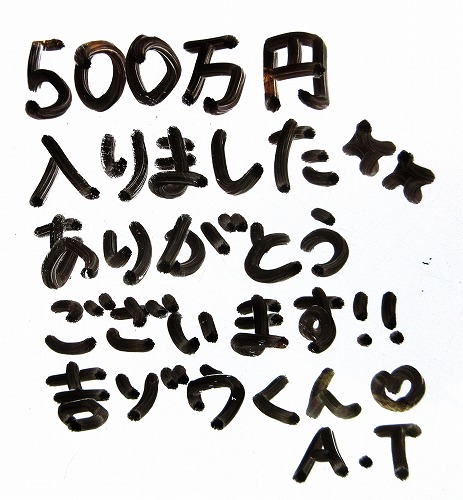 500万円
入りました☆☆
ありがとう
ございます!!
吉ゾウくん♡
A.T